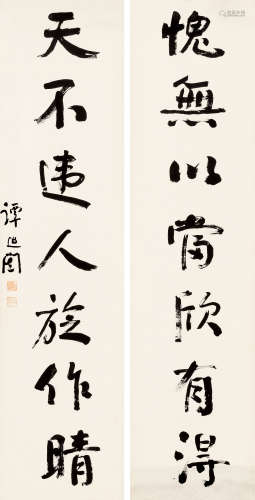 愧無以當欣有得
天不违人旋作晴
譚延闓